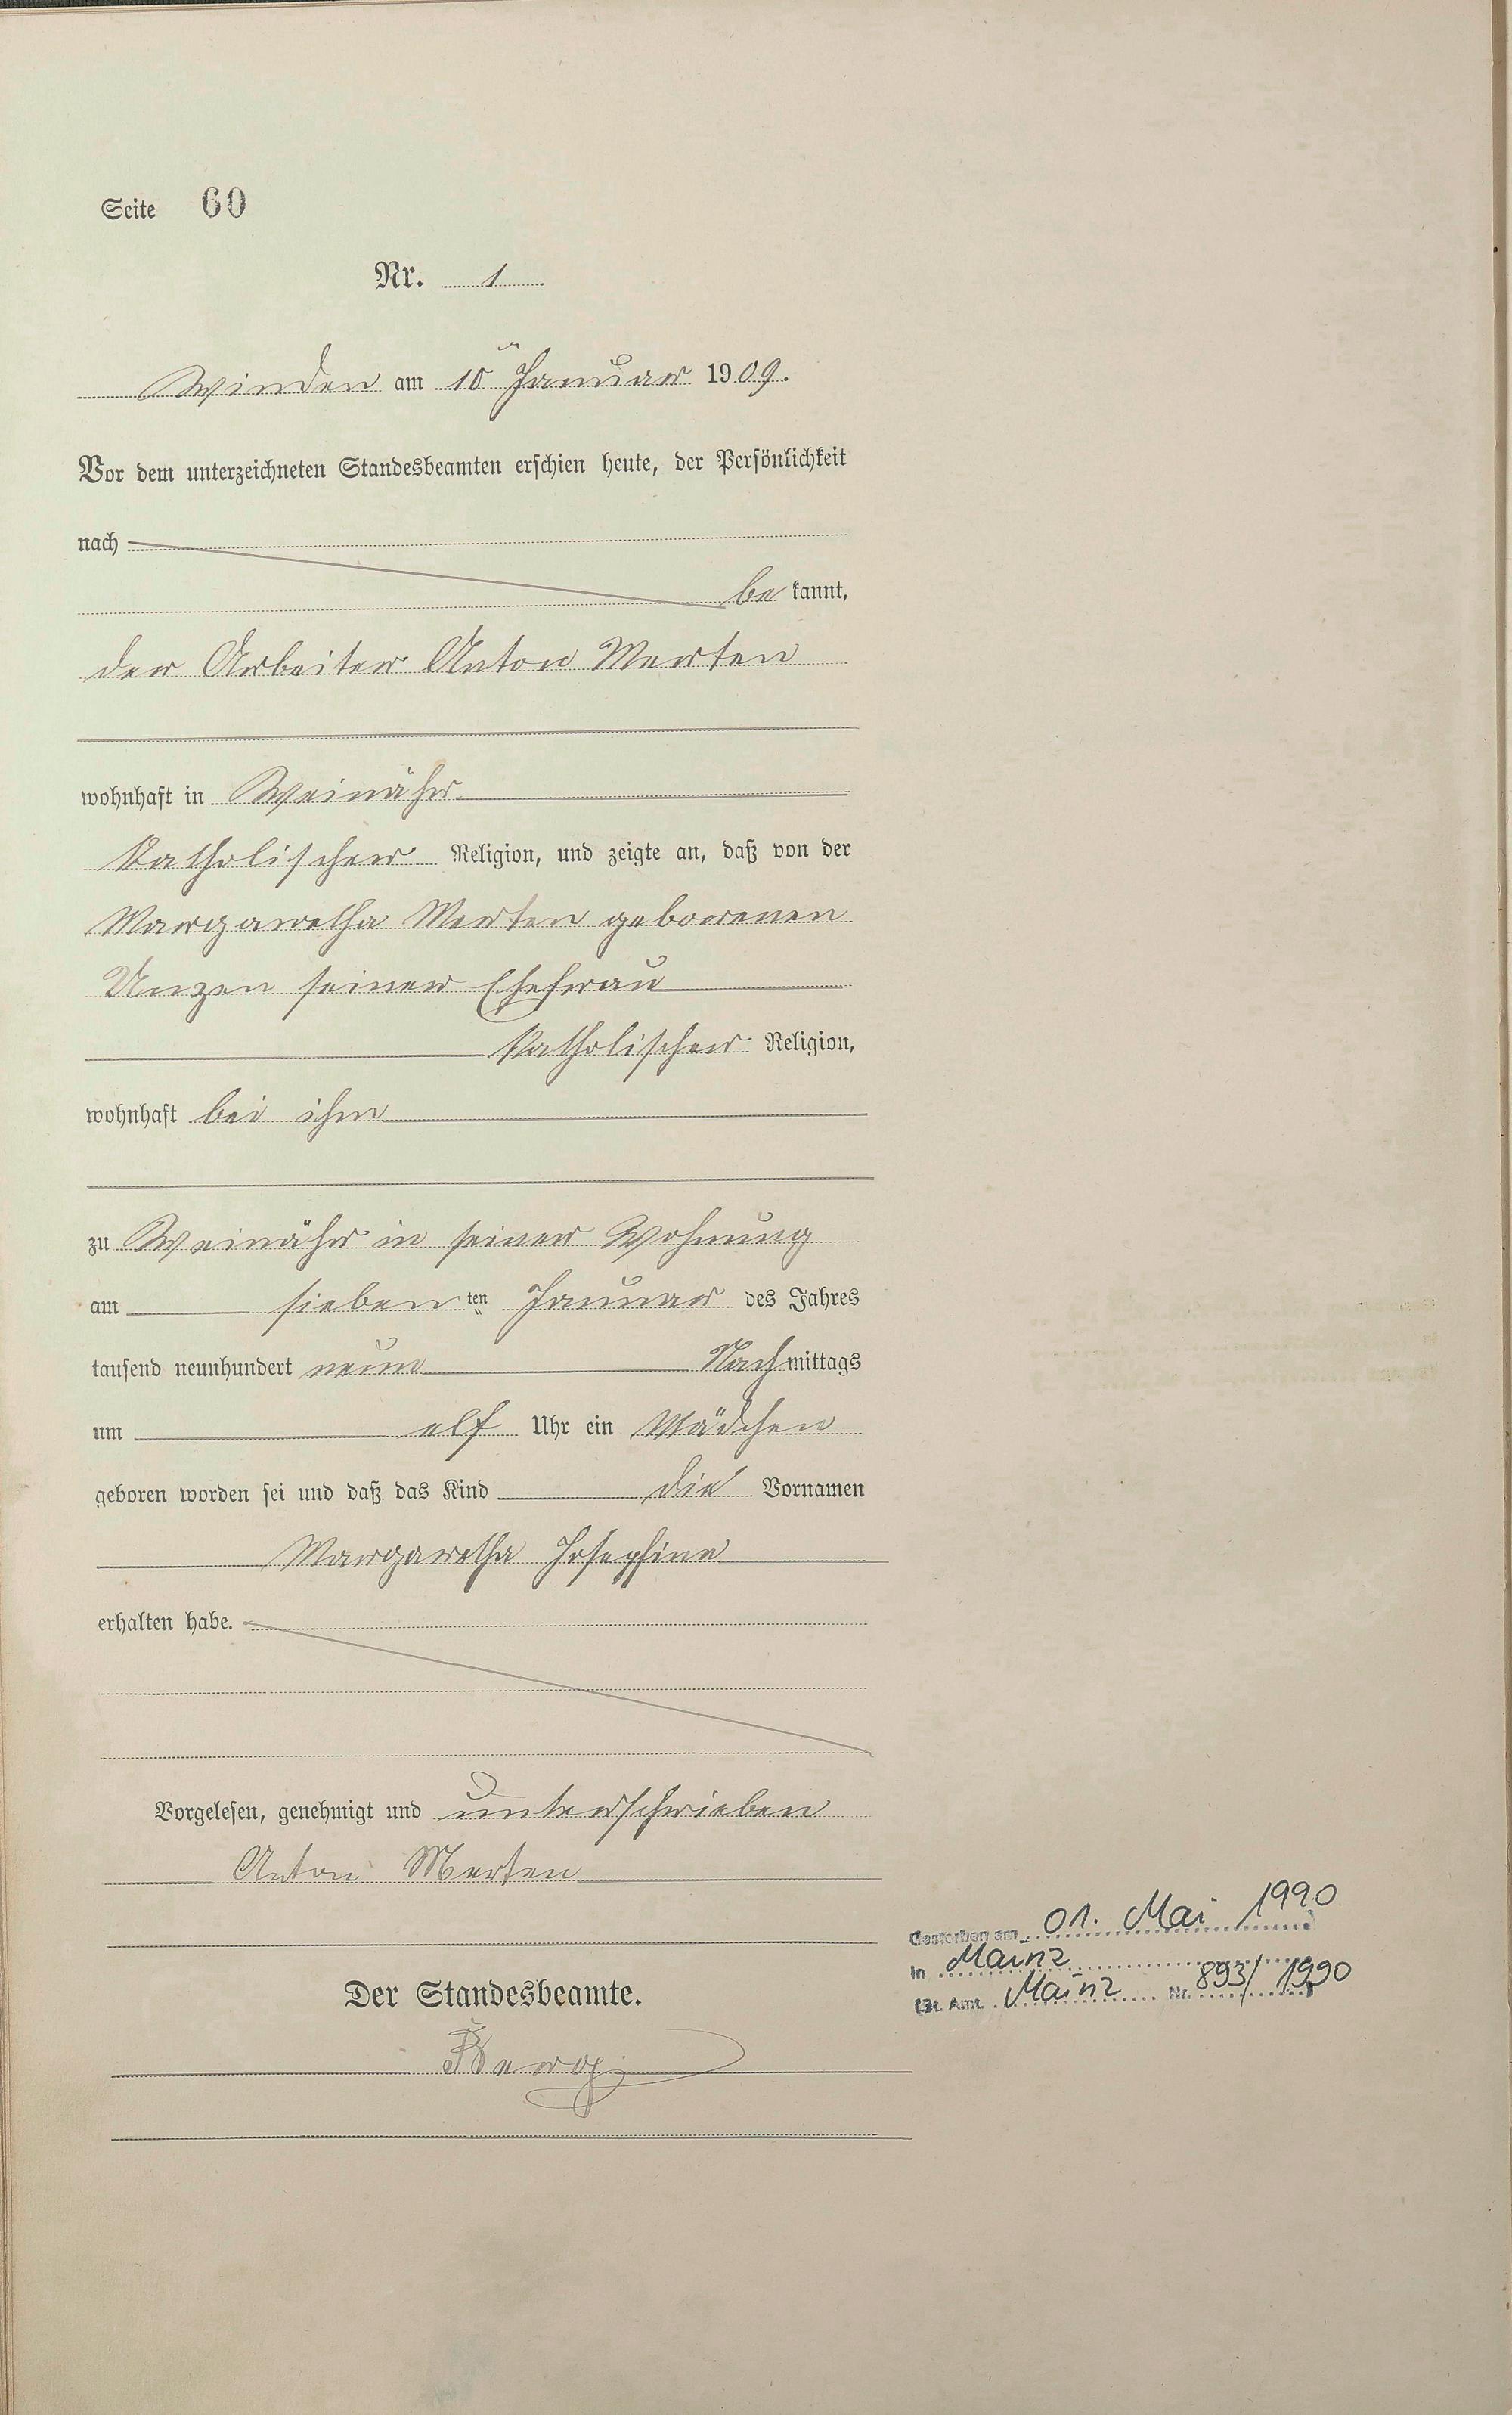 Seite 60
Nr. 1
Winden am 10ten Januar 1909.
Vor dem unterzeichneten Standesbeamten erschien heute, der Persönlichkeit
nach
be kannt,
der Arbeiter Anton Merten
wohnhaft in Weinähr
katholischer Religion, und zeigte an, daß von der
Margaretha Merten geborenen
seiner Ehefrau
katholischer Religion,
wohnhaft bei ihm
zu Weinähr in seiner Wohnung
am sieben ten Januar des Jahres
tausend neunhundert neun Nachmittags
um elf Uhr ein Mädchen
geboren worden sei und daß das Kind die Vornamen
Margaretha Josephine
erhalten habe.
Vorgelesen, genehmigt und unterschrieben
Anton Merten
Der Standesbeamte.
Gestorben am 01. Mai 1990
in Mainz
St. Amt Mainz Nr. 893/1990